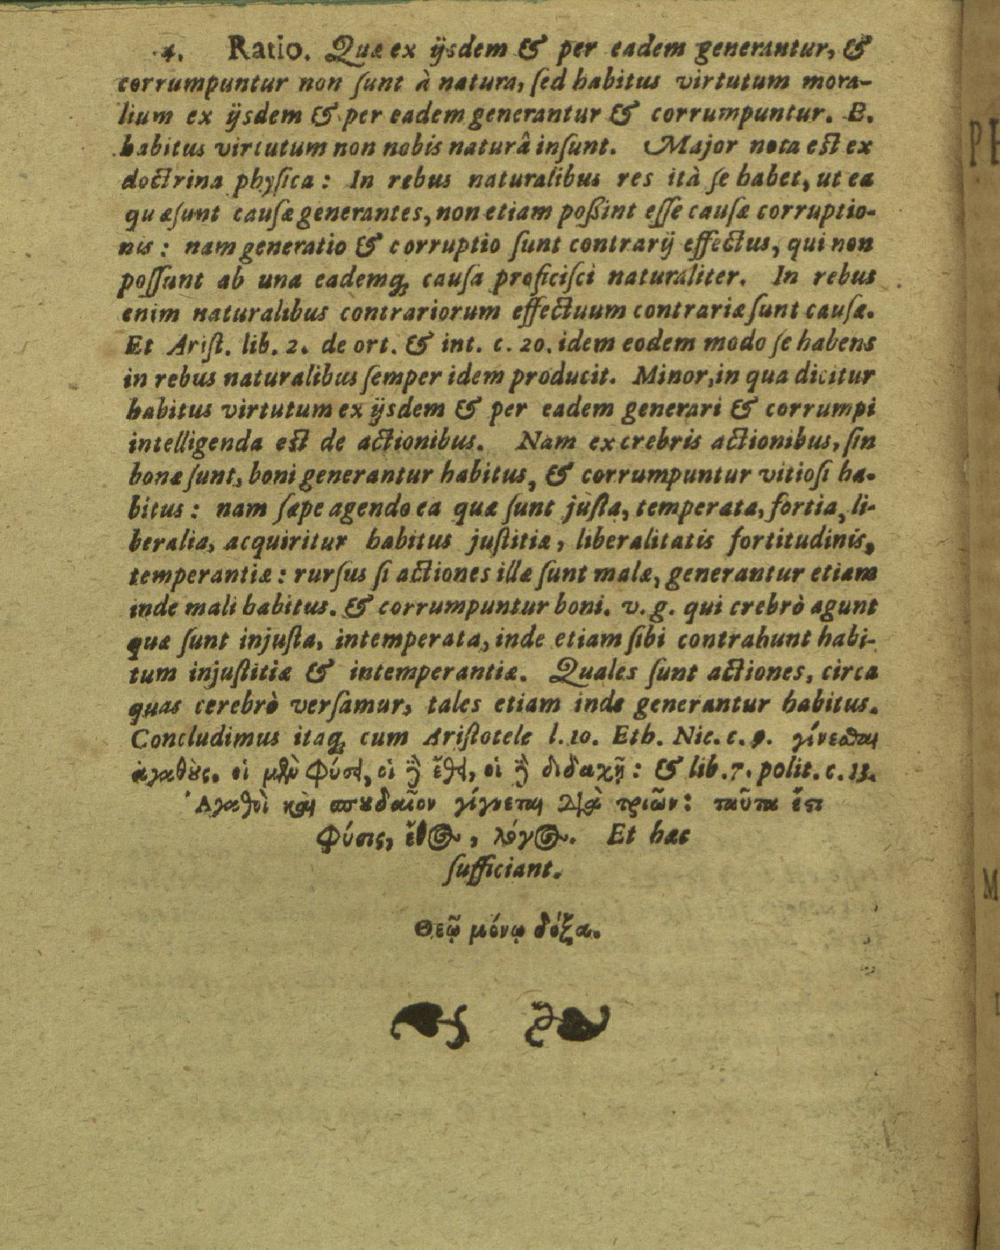 4. Ratio. Quæ ex ijsdem & per eadem generantur, &
corrumpuntur non ſunt à natura, ſed habitus virtutum mora-
lium ex ijsdem & per eadem generantur & corrumpuntur. E.
habitus virtutum non nobis naturâ inſunt. Major nota eſt ex
doctrina phyſica: In rebus naturalibus res ità ſe habet, ut ea
quæ ſunt cauſæ generantes, non etiam poßint eſſe cauſæ corruptio-
nis: nam generatio & corruptio ſunt contrarij effectus, qui non
poſſunt ab una eademq; cauſa proficiſci naturaliter. In rebus
enim naturalibus contrariorum effectuum contrariæ ſunt cauſæ.
Et Ariſt. lib. 2. de ort. & int. c. 20. idem eodem modo ſe habens
in rebus naturalibus ſemper idem producit. Minor, in qua dicitur
habitus virtutum ex ijsdem & per eadem generari & corrumpi
intelligenda eſt de actionibus. Nam ex crebris actionibus, ſin
bonæ ſunt, boni generantur habitus, & corrumpuntur vitioſi ha-
bitus: nam ſæpe agendo ea quæ ſunt juſta, temperata, fortia, li-
beralia, acquiritur habitus juſtitiæ, liberalitatis fortitudinis,
temperantiæ: rurſus ſi actiones illæ ſunt malæ, generantur etiam
inde mali habitus. & corrumpuntur boni. v. g. qui crebrò agunt
quæ ſunt injuſta, intemperata, inde etiam ſibi contrahunt habi-
tum injuſtitiæ & intemperantiæ. Quales ſunt actiones, circa
quas cerebrò verſamur, tales etiam inde generantur habitus.
Concludimus itaq; cum Ariſtotele l. 10. Eth. Nic. c. 9. γίνεσθαι
ἀγαθοὺς. οἱ μὲν φύσει, οἱ δὲ ἔθει, οἱ δὲ διδαχῇ: & lib. 7. polit. c. 13.
Ἀγαθοὶ καὶ σπουδαῖον γίγνεται διὰ τριῶν: ταῦτα ἐστι
φύσις, ἔθος, λόγος. Et hæc
ſufficiant.
Θεῷ μόνῳ δόξα.